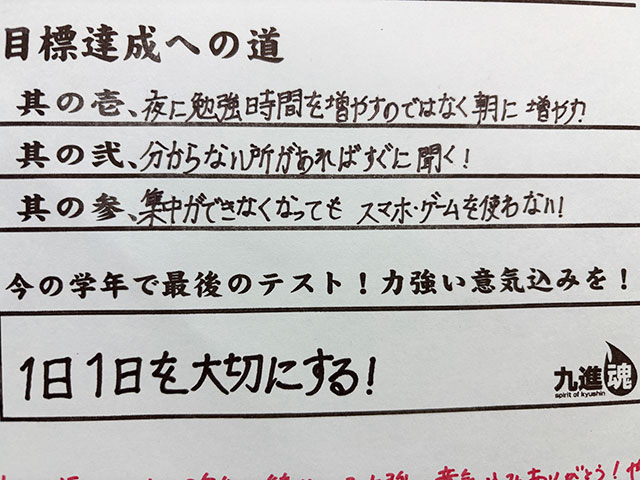 目標達成への道
其の壱、夜に勉強時間を増やすのではなく朝に増やす!
其の弐、分からない所があればすぐに聞く!
其の参、集中ができなくなっても スマホ・ゲームを使わない!
今の学年で最後のテスト!力強い意気込みを!
1日1日を大切にする!
九進魂
spirit of kyushin